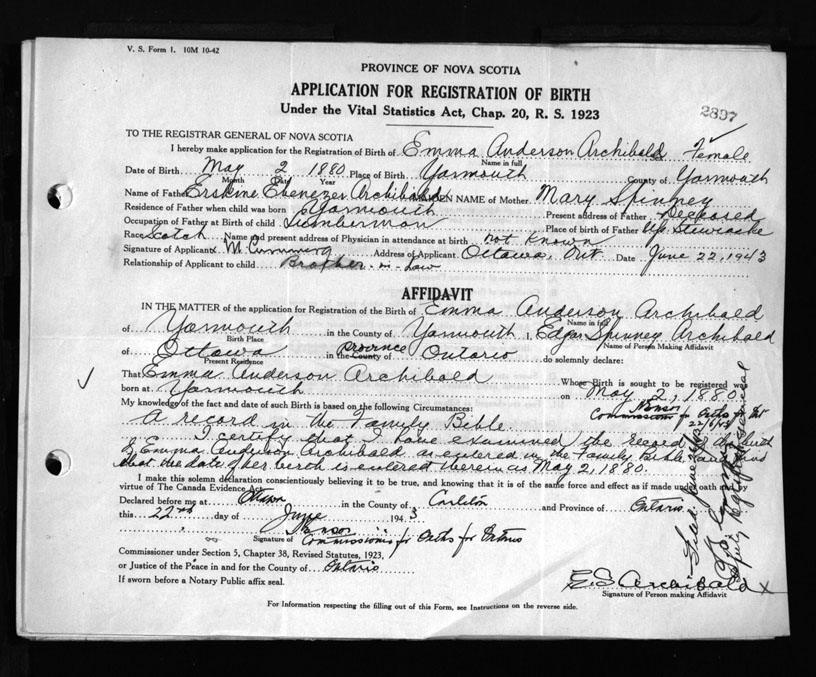 V. S. Form 1. 10M 10-42
PROVINCE OF NOVA SCOTIA
APPLICATION FOR REGISTRATION OF BIRTH
Under the Vital Statistics Act, Chap. 20, R. S. 1923
2897
TO THE REGISTRAR GENERAL OF NOVA SCOTIA
I hereby make application for the Registration of Birth of Emma Anderson Archibald Female
Name in full
Date of Birth May 2 1880 Place of Birth Yarmouth County of Yarmouth
Month Date Year
Name of Father Erskine Ebenezer Archibald MAIDEN NAME of Mother Mary Spinney
Residence of Father when child was born Yarmouth Present address of Father Deceased
Occupation of Father at Birth of child Lumberman Place of birth of Father Up. Stewiacke
Race Scotch Name and present address of Physician in attendance at birth not known
Signature of Applicant Address of Applicant Ottawa, Ont. Date June 22, 1943
Relationship of Applicant to child Brother-in-law
AFFIDAVIT
IN THE MATTER of the application for Registration of Birth of Emma Anderson Archibald
Name in full
of Yarmouth in the County of Yarmouth I, Edgar Spinney Archibald
Birth Place Name of Person Making Affidavit
of Ottawa in the County Province of Ontario do solemnly declare:
Present Residence
That Emma Anderson Archibald Whose Birth is sought to be registered was
born at Yarmouth on May 2, 1880.
My knowledge of the fact and date of such Birth is based on the following Circumstances:
Commissioner for Oaths for Ont
22/6/43
A record in the Family Bible
I certify that I have examined the record of the birth
of Emma Anderson Archibald as entered in the Family Bible and find
that the date of her birth is entered therein as May 2, 1880.
I make this solemn declaration conscientiously believing it to be true, and knowing that it is of the same force and effect as if made under oath and by
virtue of The Canada Evidence Act.
Declared before me at Ottawa in the County of Carleton and Province of Ontario
this 22nd day of June 1943
Signature of Commissioner for Oaths for Ontario
Commissioner under Section 5, Chapter 38, Revised Statutes, 1923,
or Justice of the Peace in and for the County of Ontario
If sworn before a Notary Public affix seal.
E. S. Archibald x
Signature of Person making Affidavit
For Information respecting the filling out of this Form, see Instructions on the reverse side.